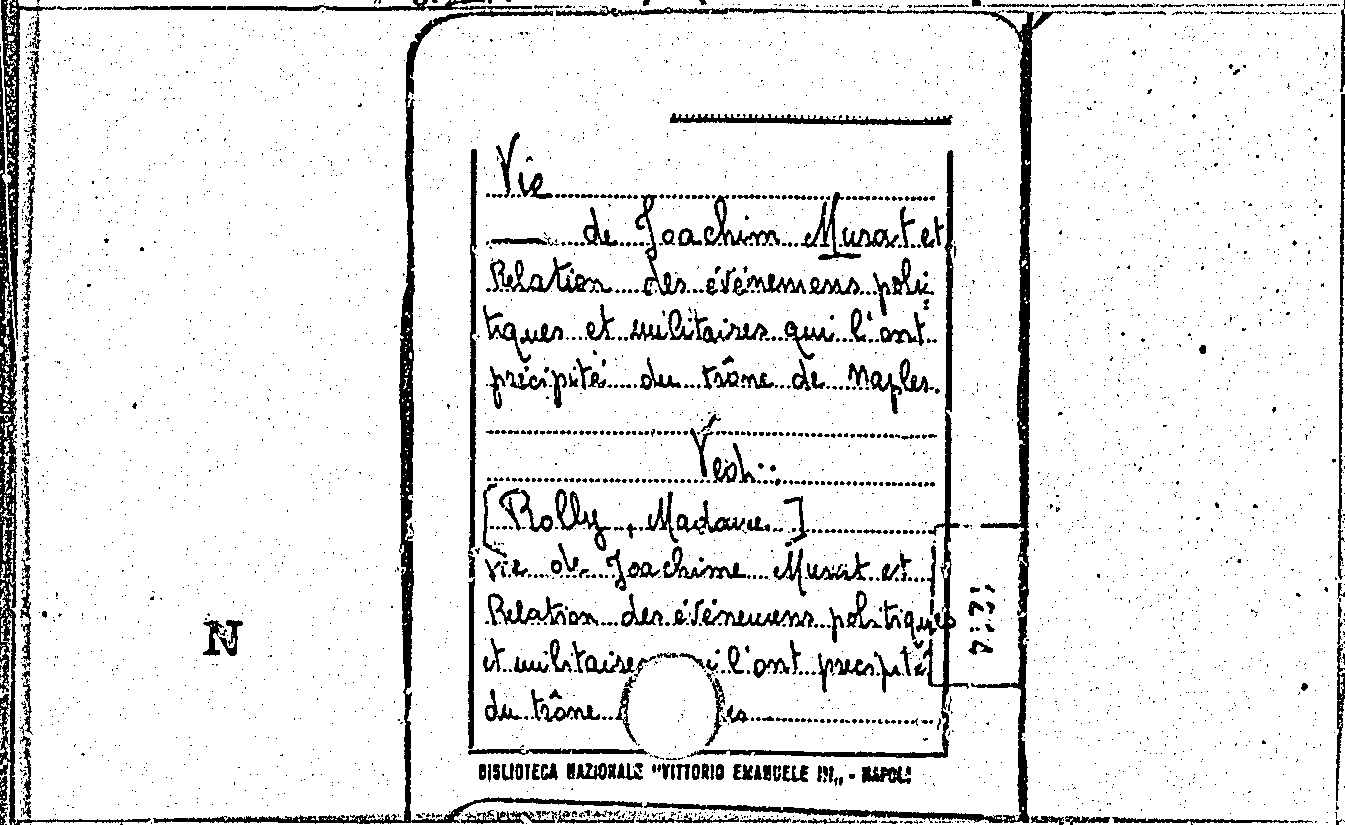 Vie
de Joachim Murat et
Relation des événemens poli
tiques et militaires qui l'ont
précipité du trône de Naples.
Ved:
[Rolly, Madame]
Vie de Joachime Murat et
Relation des événemens politiques
et militaires l'ont precipité
du trône
N
BIBLIOTECA NAZIONALE "VITTORIO EMANUELE III„ - NAPOLI